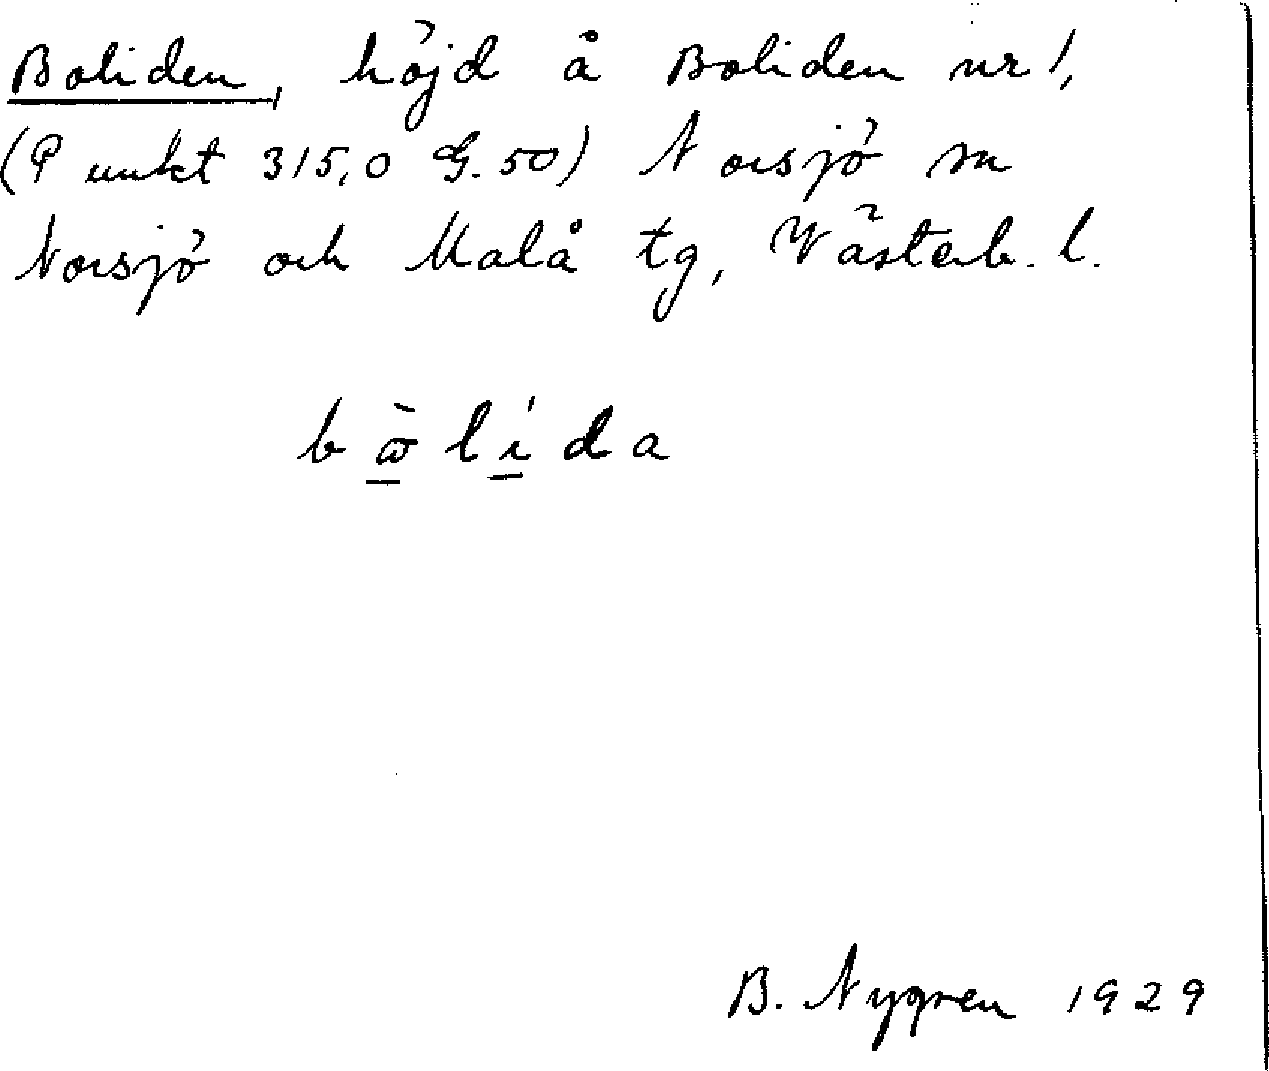 Boliden, höjd å Boliden nr 1,
(Punkt 315,0 G. 50) Norsjö sn
Norsjö och Malå tg, Västerb. l.
bὼ̲lí̲da
B. Nygren 1929